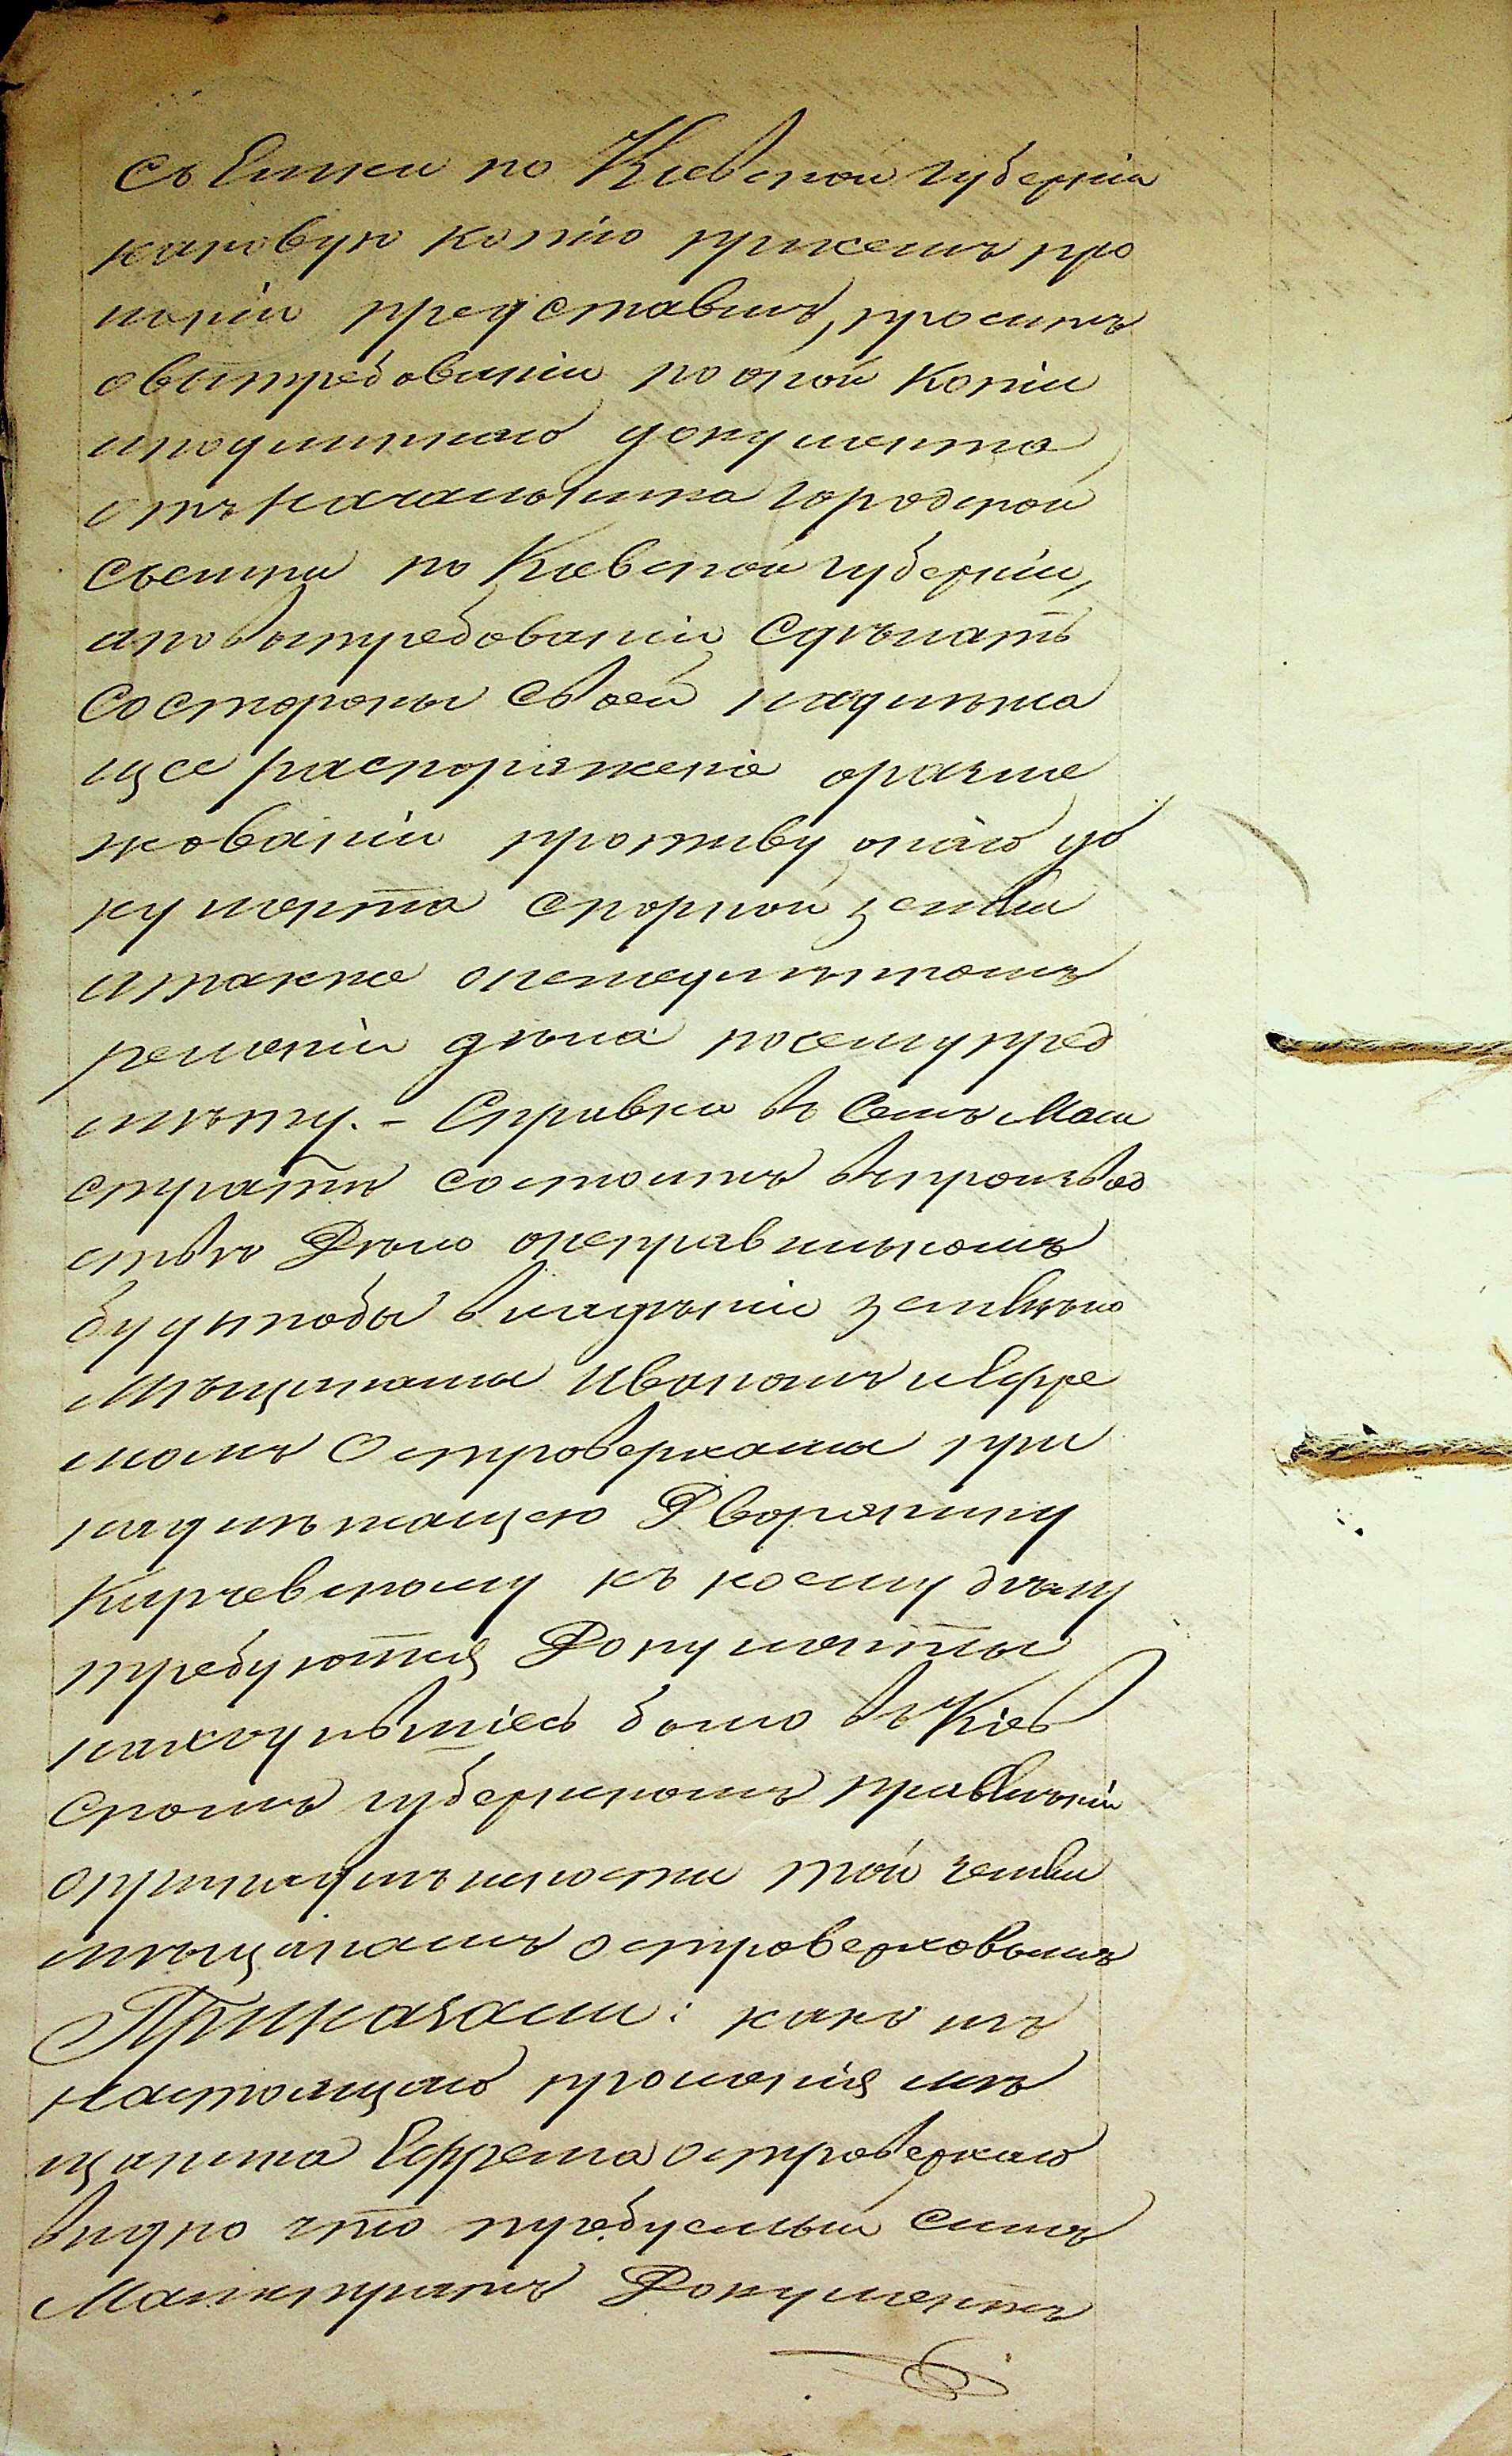 съемки по Киевской губерніи
каковую копію прижемъ про
шеніи представилъ, проситъ
овытребованіи по оной копіи
иподлиннаго документа
отъ Началника городской
съемки по Киевской губерніи,
ипо вытребованіи Сдѣлать
состороны своей надлежа
щее распоряженіе оразме
жованіи противу онаго до
кумента спорной земли
итакже онемедлѣнномъ
решеніи дѣла посему пред
мѣту. - Справка въ Семъ Маги
стратѣ состоитъ въ производ
ствѣ Дѣло онеправильномъ
будьтобы владѣніи землѣю
мѣщанами Иваномъ и Ефре
момъ Островерхами при
надлѣжащею Дворянину
Кирчевскому къ коему дѣлу
требуются Документы
находившіесь было въ Кіев
скомъ губернскомъ правлѣніи
опринадлѣжности той земли
мѣщанамъ островерховымъ
Приказали: какъ изъ
настоящаго прошенія мѣ
щанина Ефрема островерхаго
видно что требуемый симъ
Магистратъ Документъ